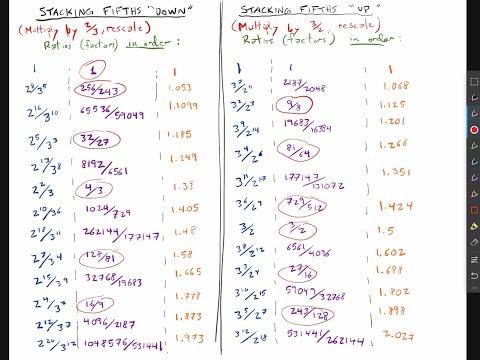 STACKING FIFTHS "DOWN"
(Multiply by 2/3, rescale)
Ratios (factors) in order:
1 1 1
2⁸/3⁵ 256/243 1.053
2¹⁶/3¹⁰ 65536/59049 1.1099
2⁵/3³ 32/27 1.185
2¹³/3⁸ 8192/6561 1.249
2²/3 4/3 1.33
2¹⁰/3⁶ 1024/729 1.405
2¹⁸/3¹¹ 262144/177147 1.48
2⁷/3⁴ 128/81 1.58
2¹⁵/3⁹ 32768/19683 1.665
2⁴/3² 16/9 1.778
2¹²/3⁷ 4096/2187 1.873
2²⁰/3¹² 1048576/531441 1.973
STACKING FIFTHS "UP"
(Multiply by 3/2, rescale)
Ratios (factors) in order:
1 1 1
3⁷/2¹¹ 2187/2048 1.068
3²/2³ 9/8 1.125
3⁹/2¹⁴ 19683/16384 1.201
3⁴/2⁶ 81/64 1.266
3¹¹/2¹⁷ 177147/131072 1.351
3⁶/2⁹ 729/512 1.424
3/2 3/2 1.5
3⁸/2¹² 6561/4096 1.602
3³/2⁴ 27/16 1.688
3¹⁰/2¹⁵ 59049/32768 1.802
3⁵/2⁷ 243/128 1.898
3¹²/2¹⁸ 531441/262144 2.027